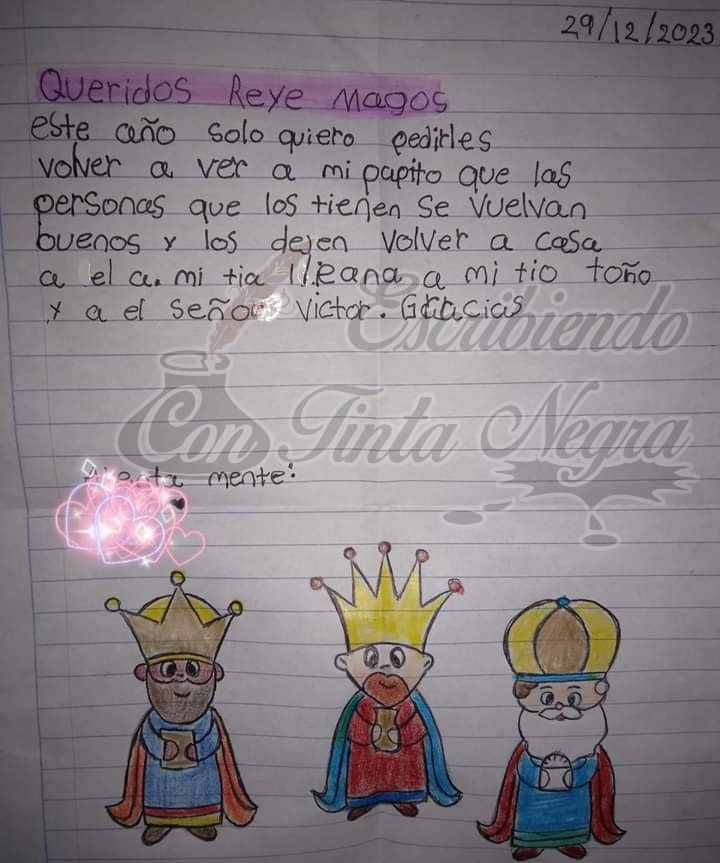 29/12/2023
Queridos Reye Magos
este año solo quiero pedirles
volver a ver a mi papito que las
personas que los tienen se vuelvan
buenos y los dejen volver a casa
a el a. mi tia Ileana a mi tio toño
y a el señor victor. Gracias
Escribiendo
Con Tinta Negra
mente: